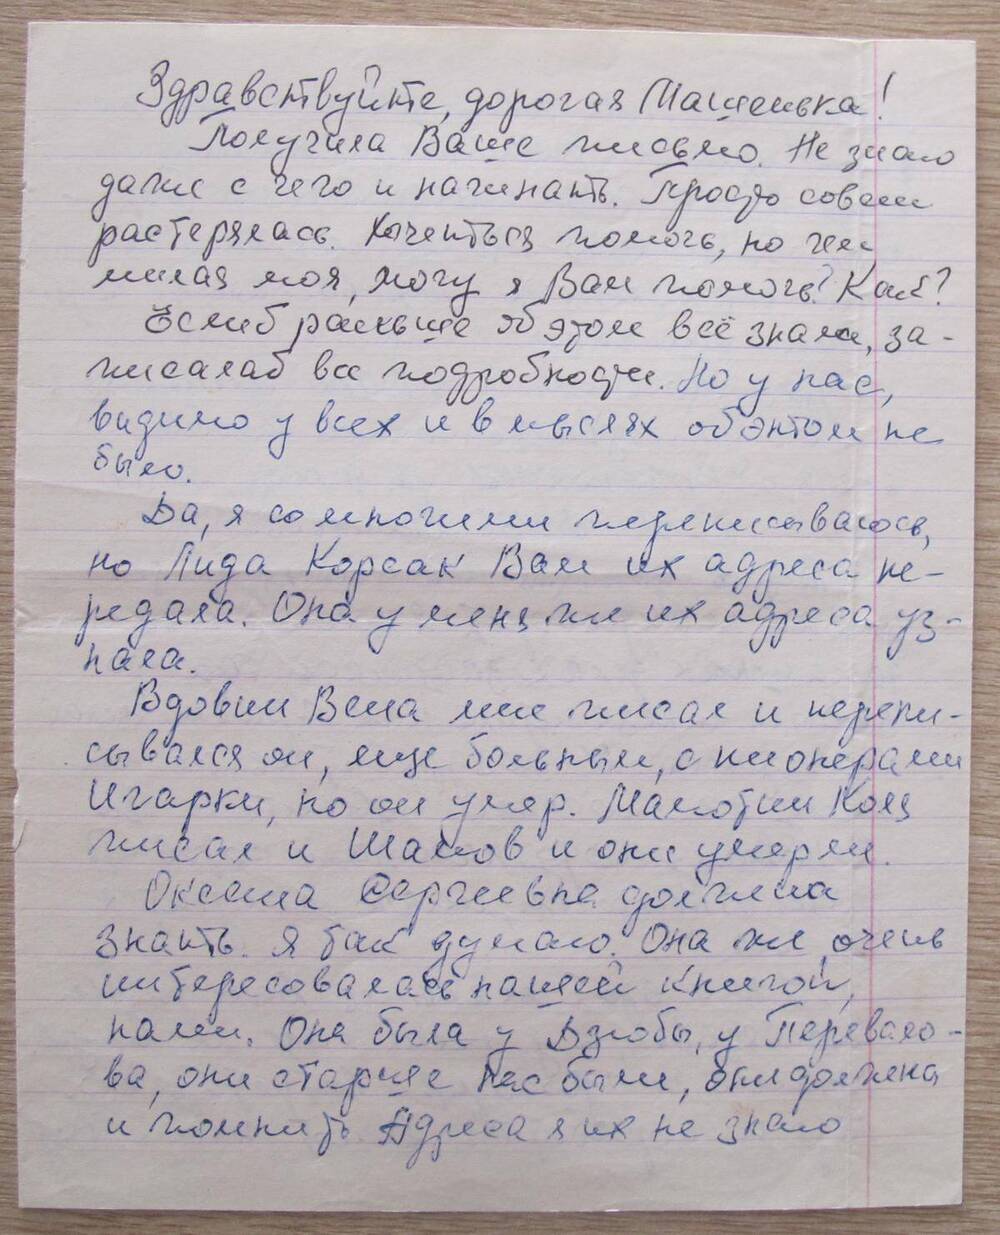 Здравствуйте, дорогая Машенька!
Получила Ваше письмо. Не знаю
даже с чего и начинать. Просто совсем
растерялась. Хочеться помочь, но чем
милая моя, могу я Вам помочь? Как?
Еслиб раньше об этом всё знали, за-
писалаб все подробности. Но у нас,
видимо у всех и в мыслях об этом не
было.
Да, я со многими переписываюсь,
но Лида Корсак Вам их адреса пе-
редала. Она у меня же их адреса уз-
нала.
Вдовин Веня мне писал и перепи-
сывался он, еще больным, с пионерами
Игарки, но он умер. Малютин Коля
писал и Шамов и они умерли.
Оксана Сергеевна должна
знать. Я так думаю. Она же очень
интересовалась нашей книгой,
нами. Она была у Дзюбы, у Перевало-
ва, они старше нас были, они должны
и помнить. Адреса я их не знаю